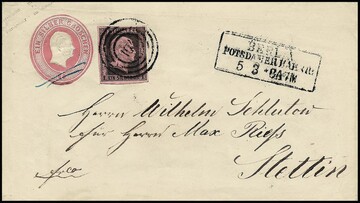 EIN SILBERGROSCHEN
BERLIN
POTSDAMER BAHNH.
5 3 * 6A7M
Herrn Wilhelm Schlutow
für Herrn Max
Stettin
fco